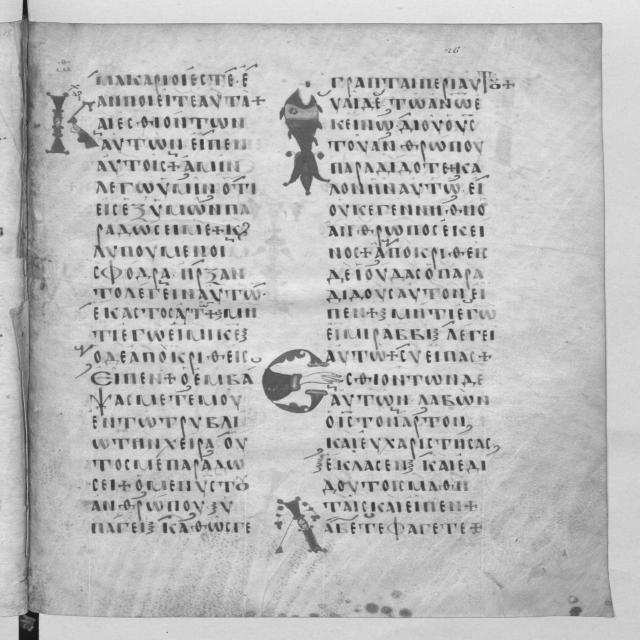 ΜΑΚΑΡΙΟΙΕϹΤΕ·Ε
ΑΝΠΟΙΕΙΤΕΑΥΤΑ+
ΚΑΙΕϹΘΙΟΝΤΩΝ
ΑΥΤΩΝΕΙΠΕΝ
ΑΥΤΟΙϹ+ΑΜΙΝ
ΛΕΓΩΥΜΙΝΟΤΙ
ΕΙϹΕΞΥΜΩΝΠΑ
ΡΑΔΩϹΕΙΜΕ+Κϗ
ΛΥΠΟΥΜΕΝΟΙ
ϹΦΟΔΡΑ·ΗΡΞΑΝ
ΤΟΛΕΓΕΙΝΑΥΤΩ·
ΕΚΑϹΤΟϹΑΥΤ+ΜΗ
ΤΙΕΓΩΕΙΜΙΚΕ
ΟΔΕΑΠΟΚΡΙΘΕΙϹ
ΕΙΠΕΝ+ΟΕΜΒΑ
ΨΑϹΜΕΤΕΜΟΥ
ΕΝΤΩΤΡΥΒΛΙ
ΩΤΗΝΧΕΙΡΑΟΥ
ΤΟϹΜΕΠΑΡΑΔΩ
ϹΕΙ+ΟΜΕΝΥϹΤΟΥ
ΑΝΘΡΩΠΟΥΥ
ΠΑΓΕΙΚΑΘΩϹΓΕ
ΓΡΑΠΤΑΙΠΕΡΙΑΥΤΟΥ+
ΟΥΑΙΔΕΤΩΑΝΩΕ
ΚΕΙΝΩΔΙΟΥΟΥϹ
ΤΟΥΑΝΘΡΩΠΟΥ
ΠΑΡΑΔΙΔΟΤΕ+ΚΑ
ΛΟΝΗΝΑΥΤΩΕΙ
ΟΥΚΕΓΕΝΝΗΘΗΟ
ΑΝΘΡΩΠΟϹΕΚΕΙ
ΝΟϹ+ΑΠΟΚΡΙΘΕΙϹ
ΔΕΙΟΥΔΑϹΟΠΑΡΑ
ΔΙΔΟΥϹΑΥΤΟΝΕΙ
ΠΕΝ+ΜΗΤΙΕΓΩ
ΕΙΜΙΡΑΒΒΙΛΕΓΕΙ
ΑΥΤΩ+ϹΥΕΙΠΑϹ+
ΕϹΘΙΟΝΤΩΝΔΕ
ΑΥΤΩΝΛΑΒΩΝ
ΟΙϹΤΟΝΑΡΤΟΝ
ΚΑΙΕΥΧΑΡΙϹΤΗϹΑϹ
ΕΚΛΑϹΕΝΚΑΙΕΔΙ
ΔΟΥΤΟΙϹΜΑΘΗ
ΤΑΙϹΚΑΙΕΙΠΕΝ+
ΛΑΒΕΤΕΦΑΓΕΤΕ+